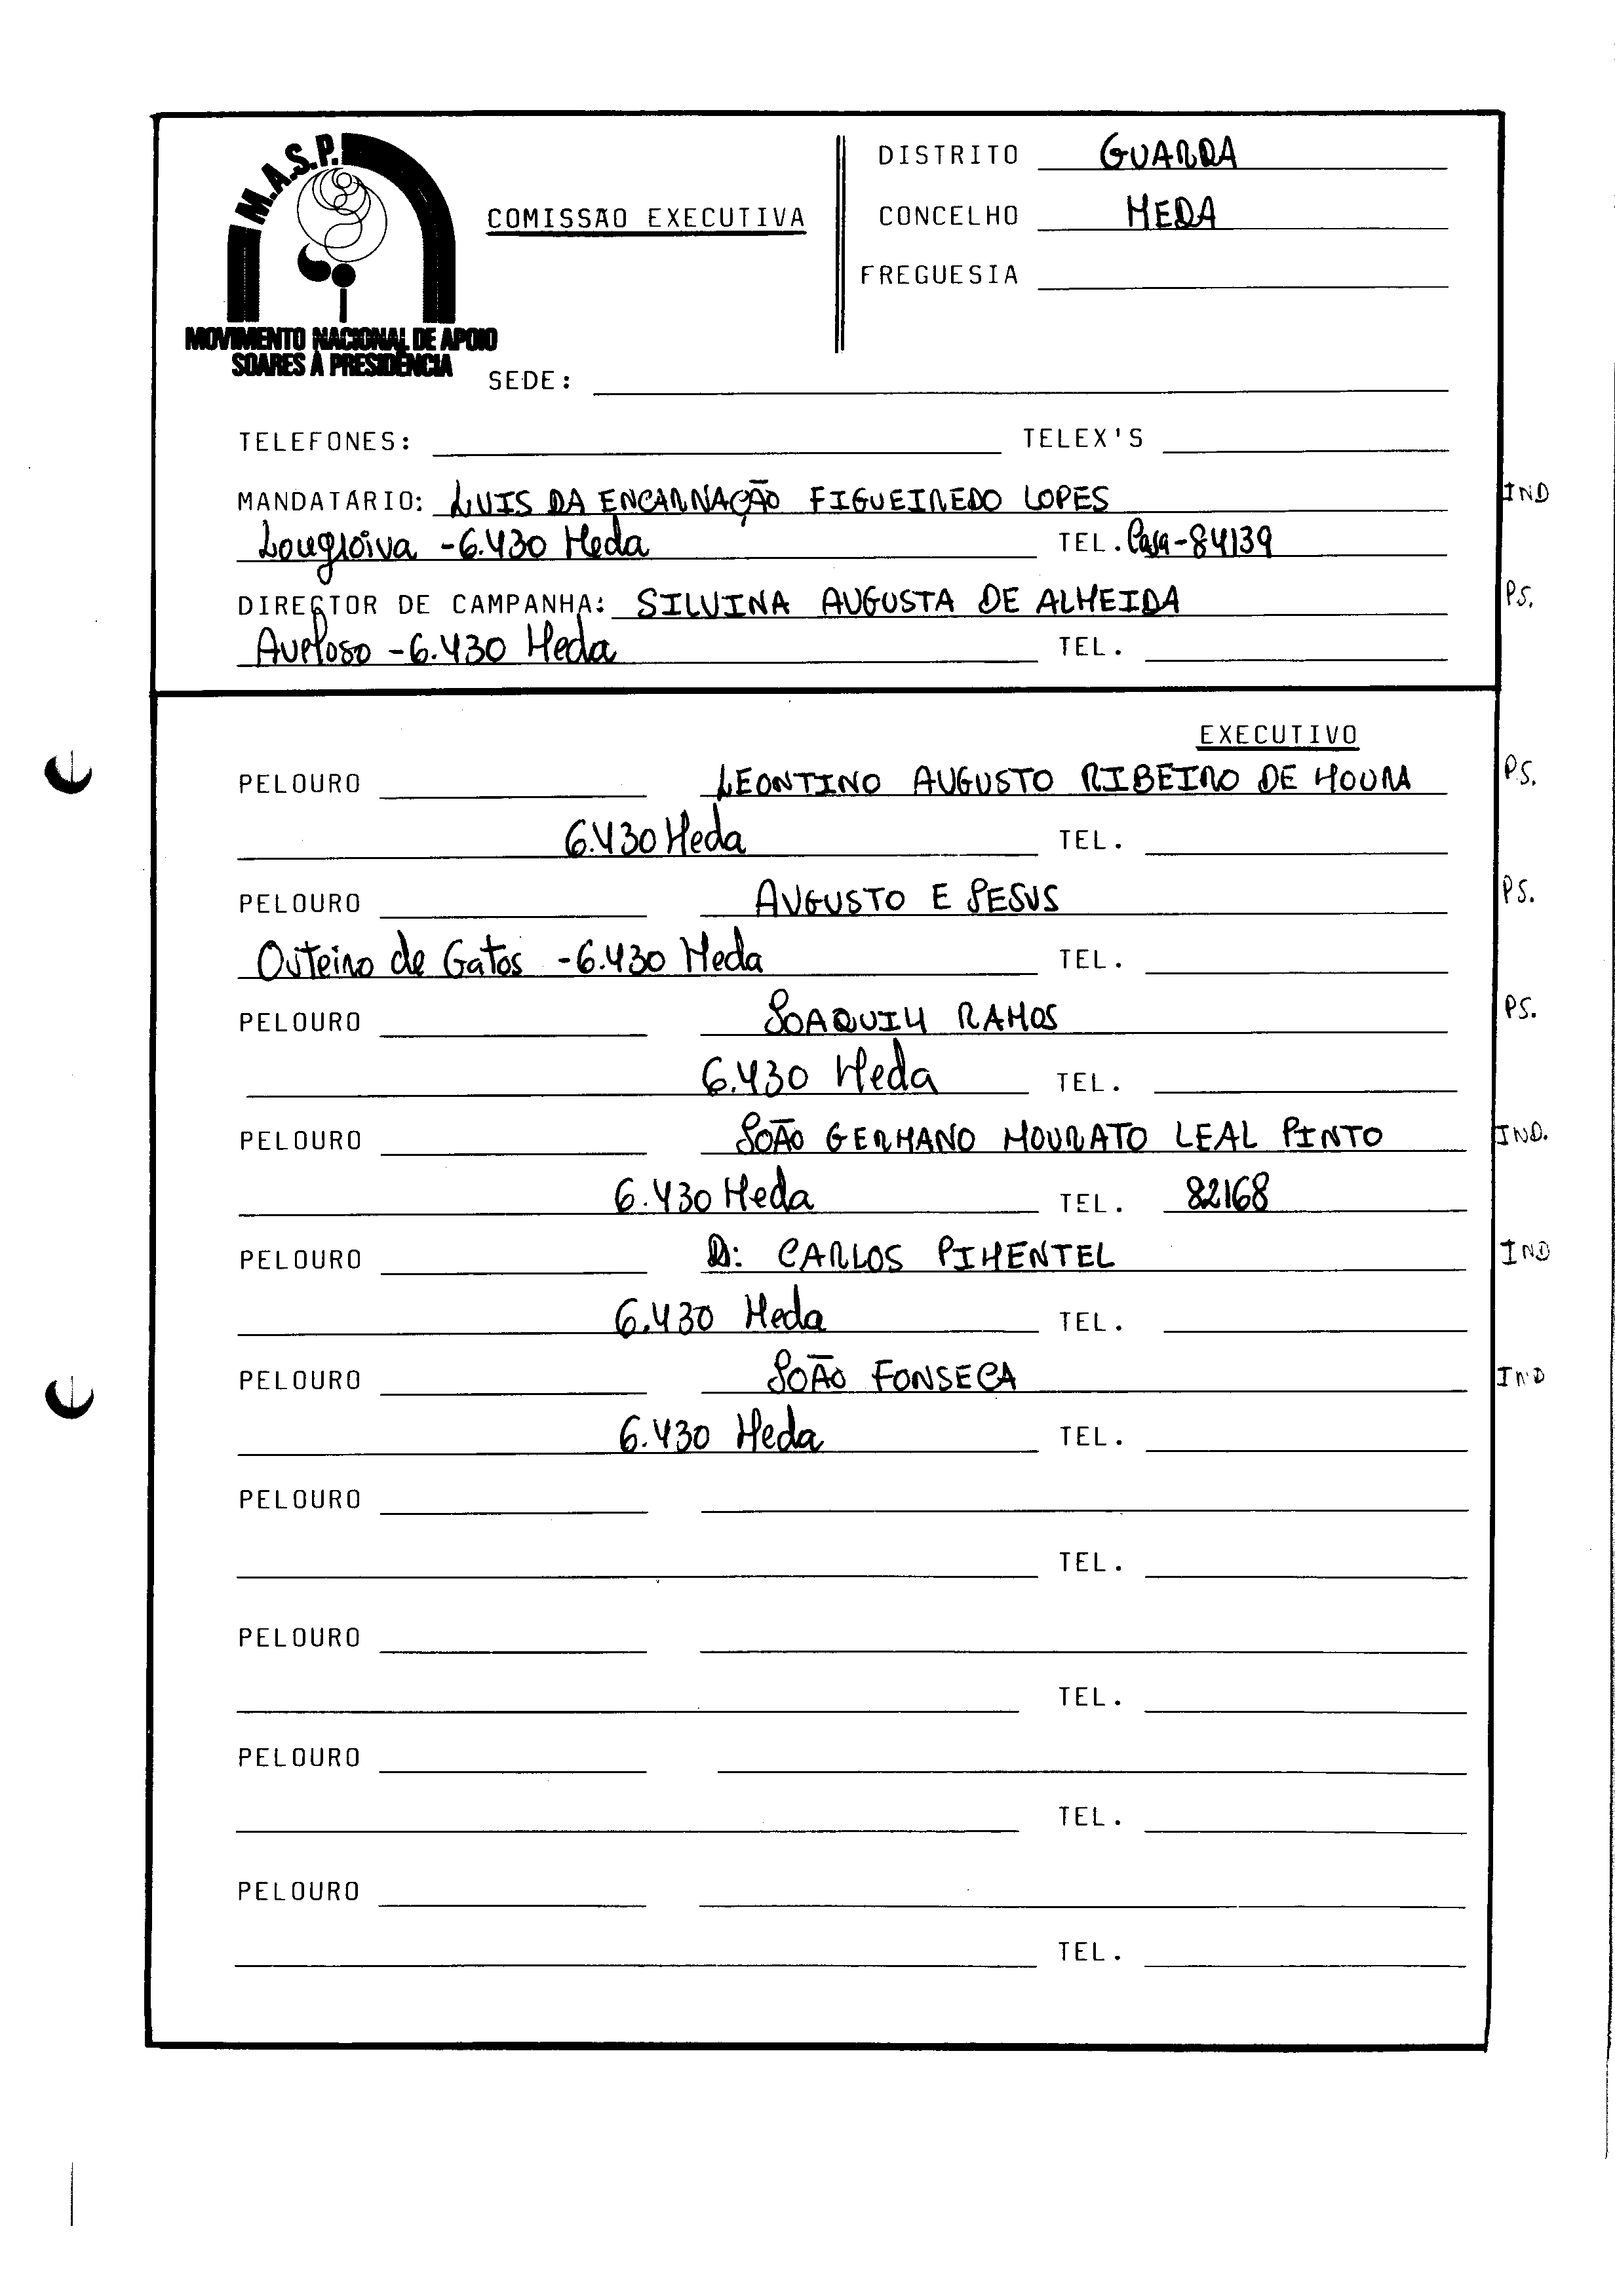 M.A.S.P.
MOVIMENTO NACIONAL DE APOIO
SOARES À PRESIDÊNCIA
COMISSÃO EXECUTIVA
DISTRITO GUARDA
CONCELHO MEDA
FREGUESIA
SEDE:
TELEFONES: TELEX'S
MANDATARIO: LUIS DA ENCARNAÇÃO FIGUEIREDO LOPES IND
Longroiva - 6.430 Meda TEL. Casa - 84139
DIRECTOR DE CAMPANHA: SILVINA AUGUSTA DE ALMEIDA PS.
Aveloso - 6.430 Meda TEL.
EXECUTIVO
PELOURO LEONTINO AUGUSTO RIBEIRO DE MOURA P.S.
6.430 Meda TEL.
PELOURO AUGUSTO E JESUS PS.
Outeiro de Gatos - 6.430 Meda TEL.
PELOURO JOAQUIM RAMOS PS.
6.430 Meda TEL.
PELOURO JOÃO GERMANO MOURATO LEAL PINTO IND.
6.430 Meda TEL. 82168
PELOURO CARLOS PIMENTEL IND
6.430 Meda TEL.
PELOURO JOÃO FONSECA IND
6.430 Meda TEL.
PELOURO
TEL.
PELOURO
TEL.
PELOURO
TEL.
PELOURO
TEL.